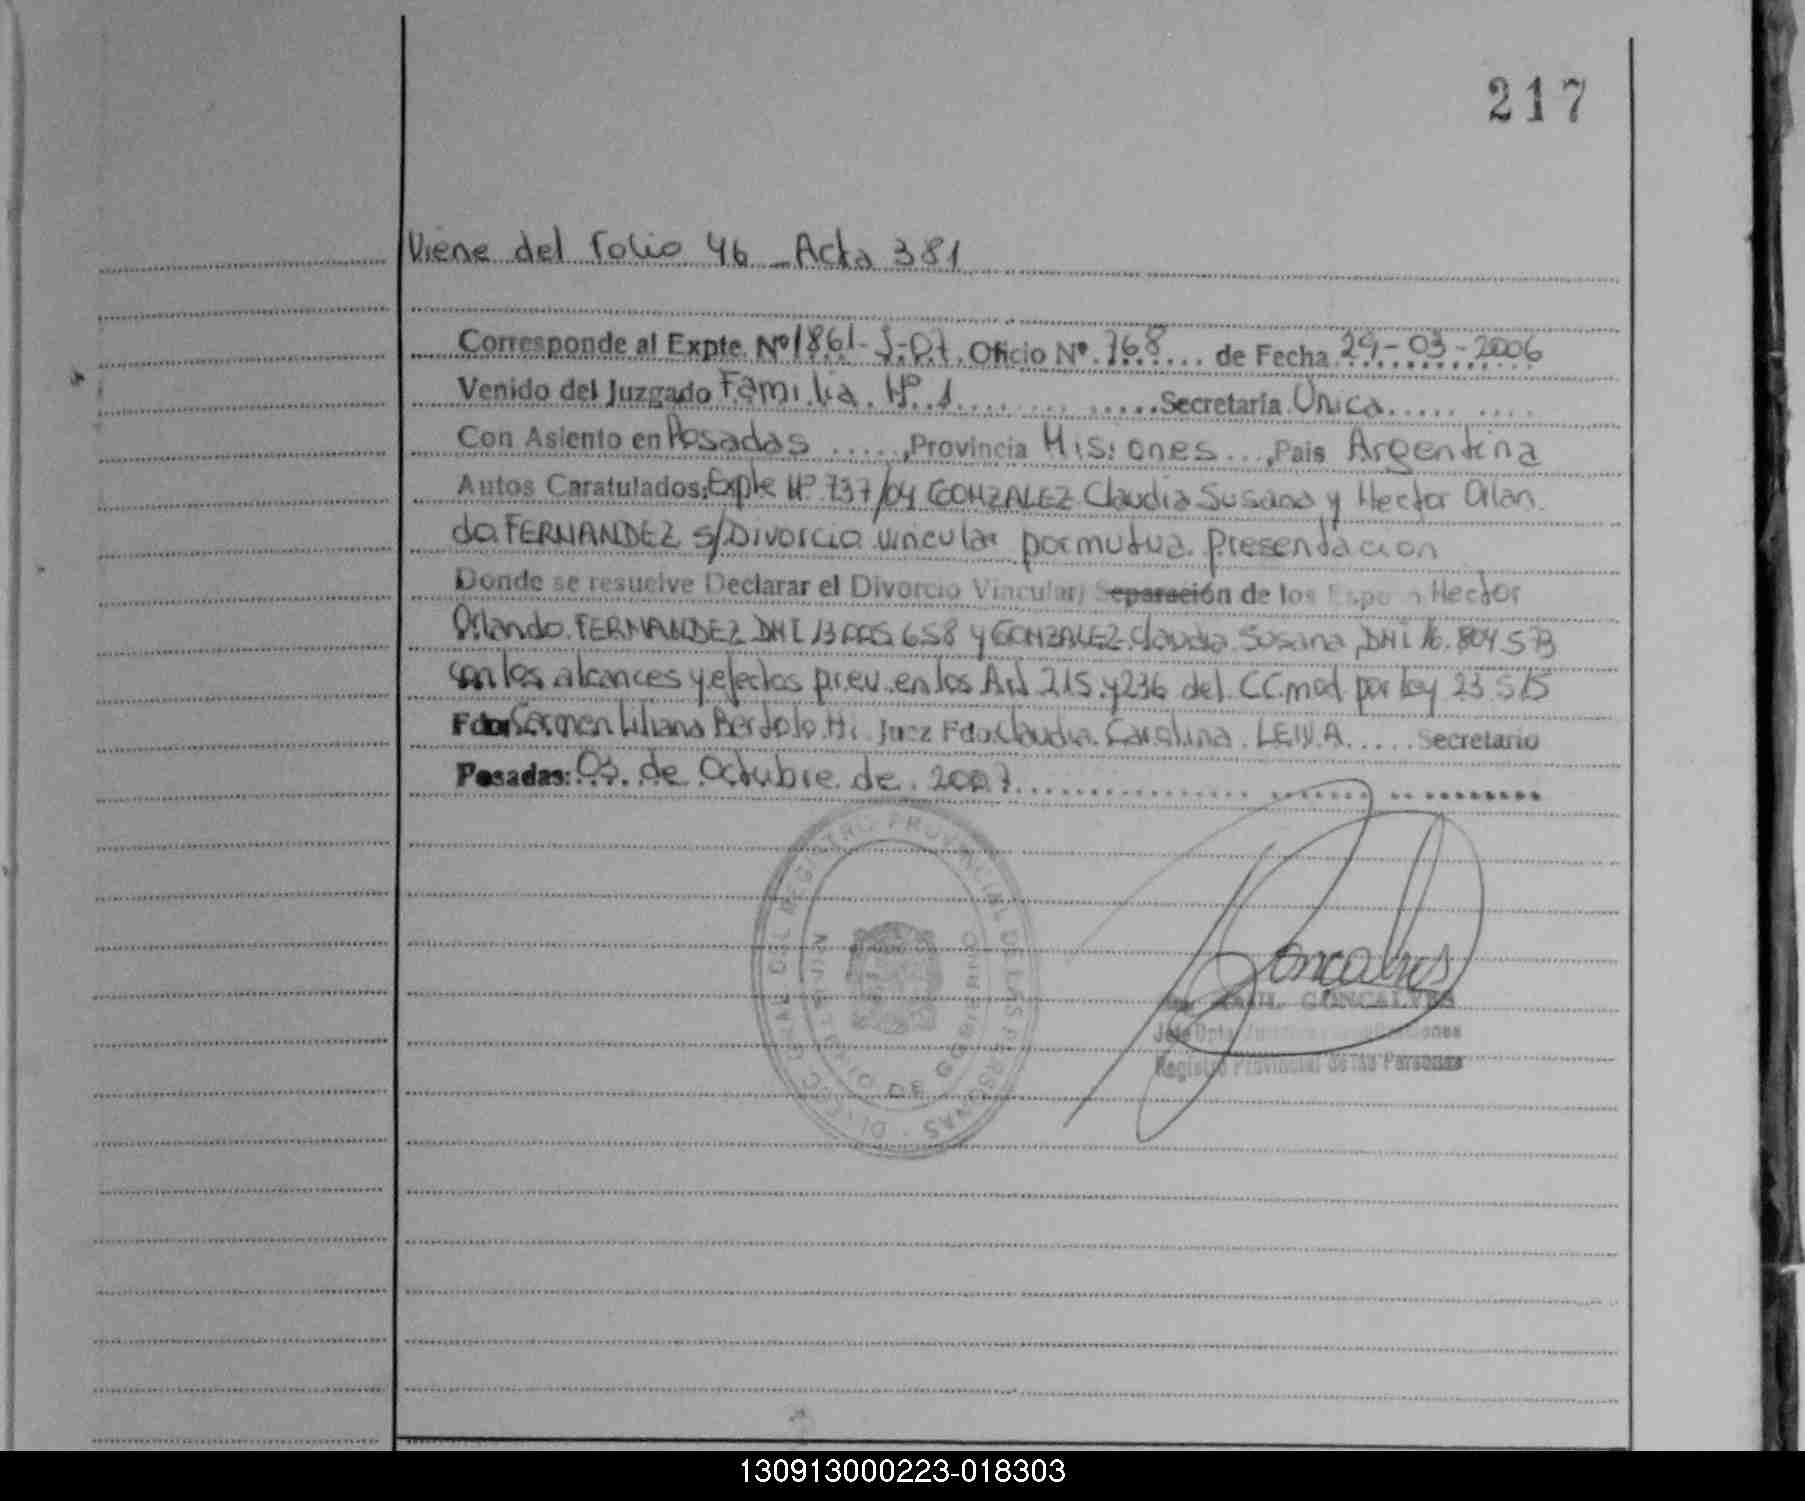 217
Viene del Folio 46 - Acta 381
Corresponde al Expte. Nº 1861-J-07. Oficio Nº. 768... de Fecha 29-03-2006
Venido del Juzgado Familia. Nº. 1........ Secretaría Unica.........
Con Asiento en Posadas ....., Provincia Misiones..., Pais Argentina
Autos Caratulados: Expte Nº 737/04 GONZALEZ Claudia Susana y Hector Orlan
do FERNANDEZ s/Divorcio vincular por mutua presentacion
Donde se resuelve Declarar el Divorcio Vincular/ Separación de los Hector
Orlando FERNANDEZ DNI 13.005.658 y GONZALEZ Claudia Susana, DNI 16.804.573
con los alcances y efectos prev. en los Art 215 y 236 del CC. mod por ley 23.515
Fdo. Carmen Liliana Bertolotti Juez Fdo. Claudia Carolina LEIVA..... Secretario
Posadas: 03 de Octubre de 2007
DIREC. GRAL. DEL REGISTRO PROVINCIAL DE LAS PERSONAS
Goncalves
RAUL GONCALVES
Jefe Dpto.
Registro Provincial de las Personas
130913000223-018303